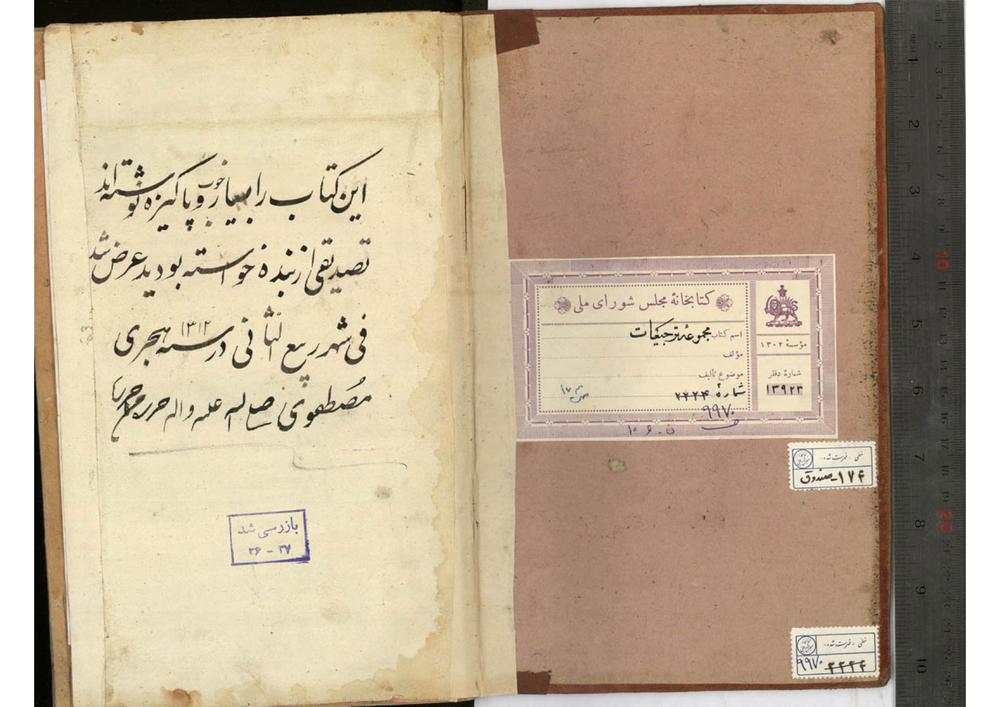 این کتاب را بسیار خوب و پاکیزه نوشته‌اند
تصدیقی از بنده خواسته بودید عرض شد
فی شهر ربیع الثانی در سنه ۱۳۱۲ هجری
مصطفوی صلی الله علیه و اله حرره
بازرسی شد
۳۶ - ۳۷
کتابخانهٔ مجلس شورای ملی
اسم کتاب مجموعه ترجیعات
مؤلف
موضوع تألیف
شمارهٔ ۲۲۲۴
۹۹۷۰
مؤسسهٔ ۱۳۰۲
شمارهٔ دفتر
۱۳۹۲۳
خطی - فهرست شده
صندوق ۱۷۴
خطی - فهرست شده
۲۲۲۴
۹۹۷۰
1
2
3
4
6
7
8
9
10
10
20